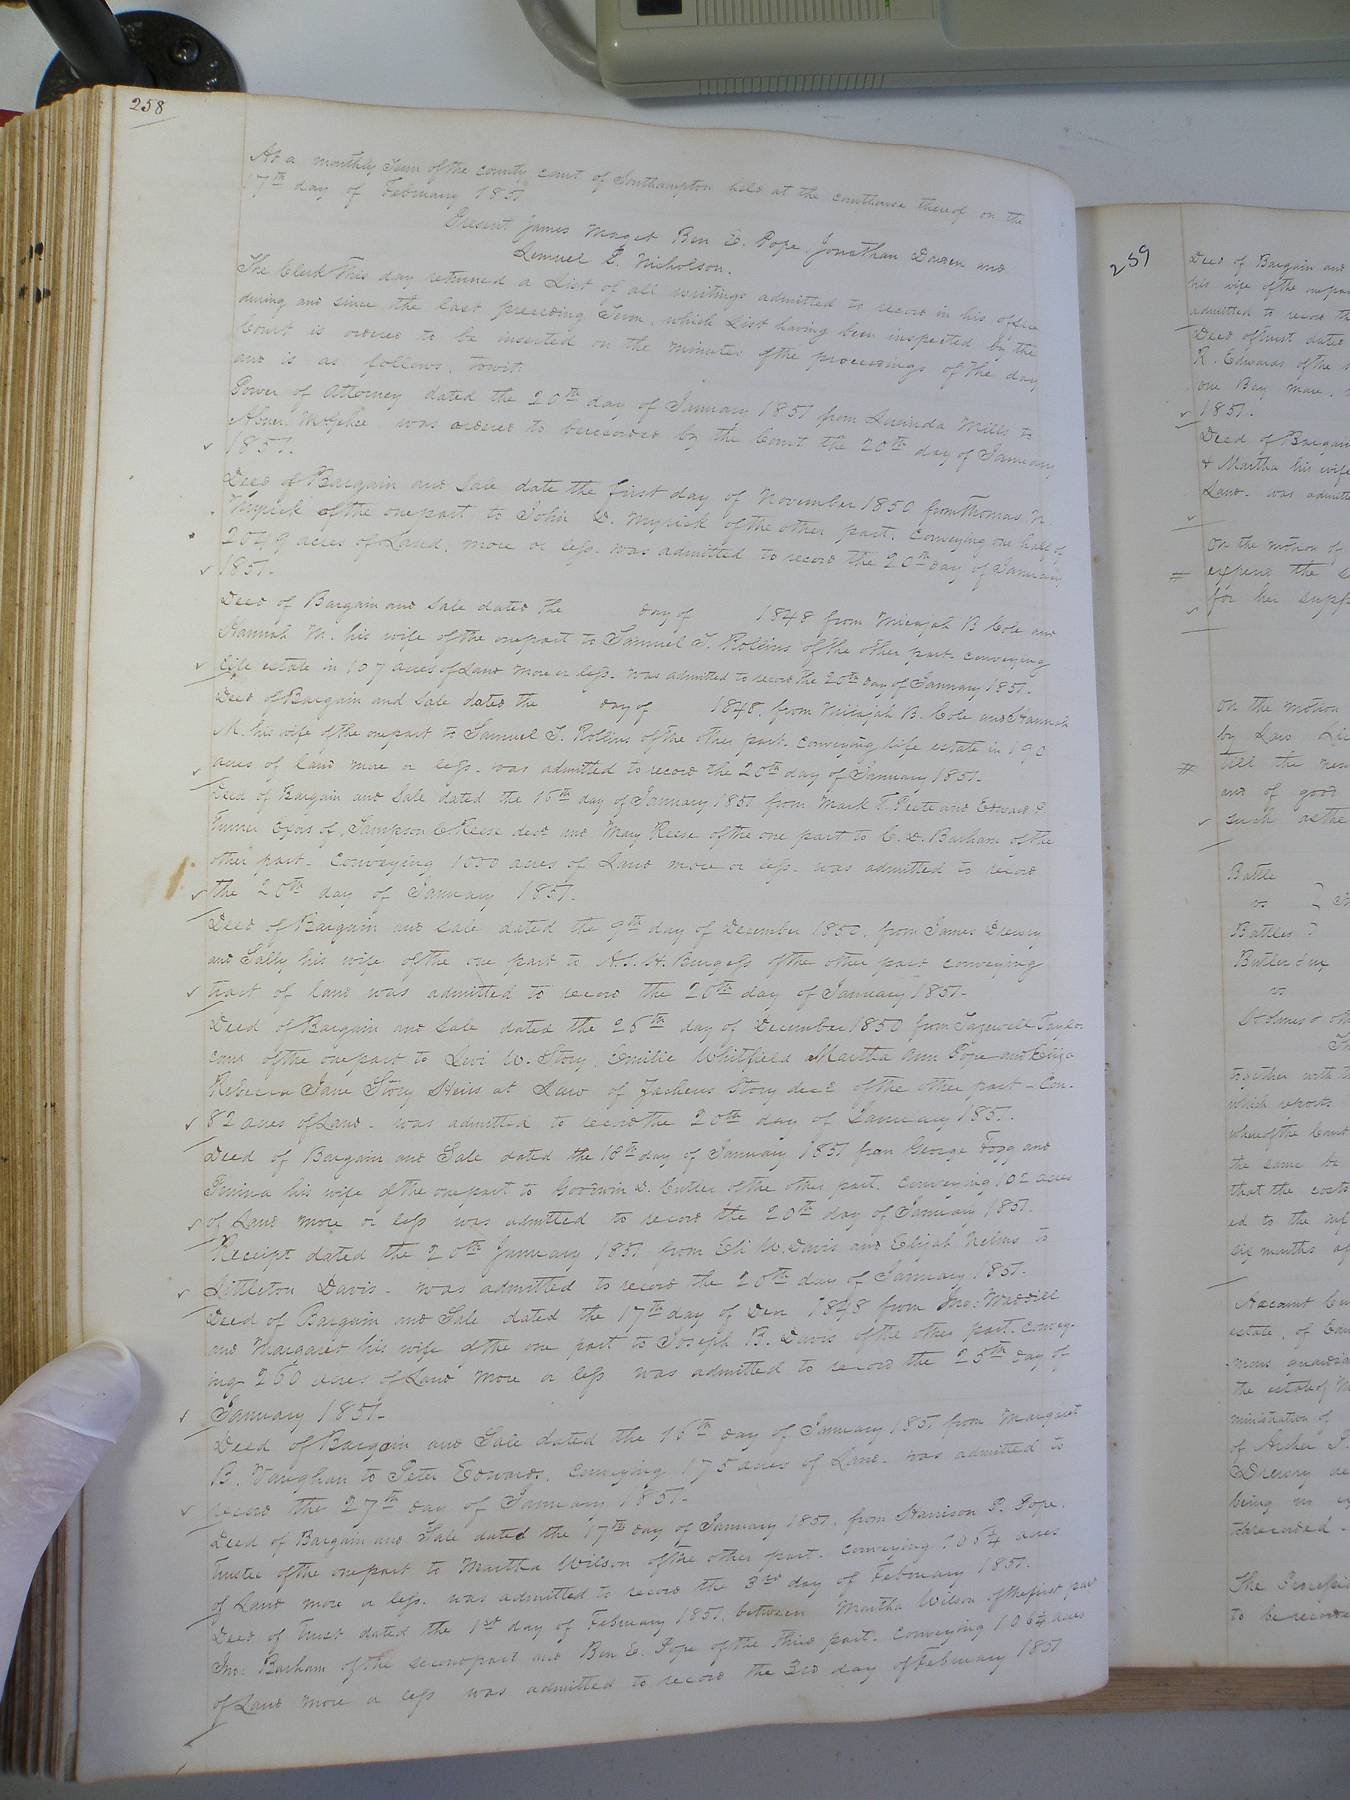 258
At a monthly Term of the county court of Southampton held at the courthouse thereof on the
17th day of February 1851
Present James Maget Ben E. Pope, Jonathan Darden and
Lemuel L. Nicholson.
The Clerk this day returned a List of all writings admitted to record in his office
during and since the last preceding Term, which List having been inspected by the
Court is ordered to be inserted on the minutes of the proceedings of the day
and is as follows, towit:
Power of Attorney dated the 20th day of January 1851 from Lucinda Mills to
Abner McGehee was ordered to be recorded by the Court the 20th day of January
1851.
Deed of Bargain and Sale date the first day of November 1850 from Thomas N.
Myrick of the one part to John D. Myrick of the other part. Conveying one half of
2049 acres of Land, more or less. was admitted to record the 20th day of January
1851.
Deed of Bargain and Sale dated the day of 1848 from Micajah B Cole and
Hannah M. his wife of the one part to Samuel T. Rollins of the other part. conveying
life estate in 107 acres of Land more or less. was admitted to record the 20th day of January 1851.
Deed of Bargain and Sale dated the day of 1848. from Micajah B. Cole and Hannah
M. his wife of the one part to Samuel T. Rollins of the other part. conveying life estate in 190
acres of land more or less. was admitted to record the 20th day of January 1851.
Deed of Bargain and Sale dated the 16th day of January 1851 from Mark T. Peete and Edward P.
Turner Exors of Sampson C Reese decd and Mary Reese of the one part to C. D. Barham of the
other part. Conveying 1000 acres of Land more or less. was admitted to record
the 20th day of January 1851.
Deed of Bargain and sale dated the 9th day of December 1850. from James Drewry
and Sally his wife of the one part to A. S. H. Burgess of the other part conveying
tract of land was admitted to record the 20th day of January 1851.
Deed of Bargain and Sale dated the 26th day of December 1850 from Tazewell Taylor
comr of the one part to Levi W. Story, Emilie Whitfield Martha Ann Pope and Eliza
Rebecca Jane Story Heirs at Law of Zacheus Story decd of the other part - Con.
82 acres of Land. was admitted to record the 20th day of January 1851.
Deed of Bargain and Sale dated the 18th day of January 1851 from George Fogg and
his wife of the one part to Goodwin D. Cutler of the other part. conveying 102 acres
of Land more or less was admitted to record the 20th day of January 1851.
Receipt dated the 20th January 1851 from Eli W. Davis and Elijah Nelms to
Littleton Davis. was admitted to record the 20th day of January 1851.
Deed of Bargain and Sale dated the 17th day of Decr 1848 from Jno: Waddill
and Margaret his wife of the one part to Joseph B. Davis of the other part. convey-
ing 260 acres of Land more or less was admitted to record the 25th day of
January 1851.
Deed of Bargain and Sale dated the 16th day of January 1851 from Margaret
B. Vaughan to Peter Edwards. conveying 175 acres of Land. was admitted to
record the 27th day of January 1851.
Deed of Bargain and Sale dated the 17th day of January 1851. from Harrison P. Pope.
Trustee of the one part to Martha Wilson of the other part. conveying 106¾ acres
of Land more or less. was admitted to record the 3rd day of February 1851.
Deed of Trust dated the 1st day of February 1851. between Martha Wilson of the first part
Jno: Barham of the second part and Ben E. Pope of the third part. conveying 106¾ acres
of Land more or less was admitted to record the 3rd day of February 1851
259
Deed of Bargain and
his wife of the one part
admitted to record th
Deed of trust dated
R. Edwards of the
one Bay mare,
1851.
Deed of Bargain
& Martha his wife
Land. was admitt
On the motion of
expend the
for her supp
On the motion
by Law
till the nex
and of good
such as the
Battle
vs.
Battles
Butler
vs
together with th
which reports
whereof the Court
the same be
that the costs
ed to the
six months af
Account Cur
estate, of
mons guardia
the estate of
ministration of
of Archer
Drewry de
being no
to be record